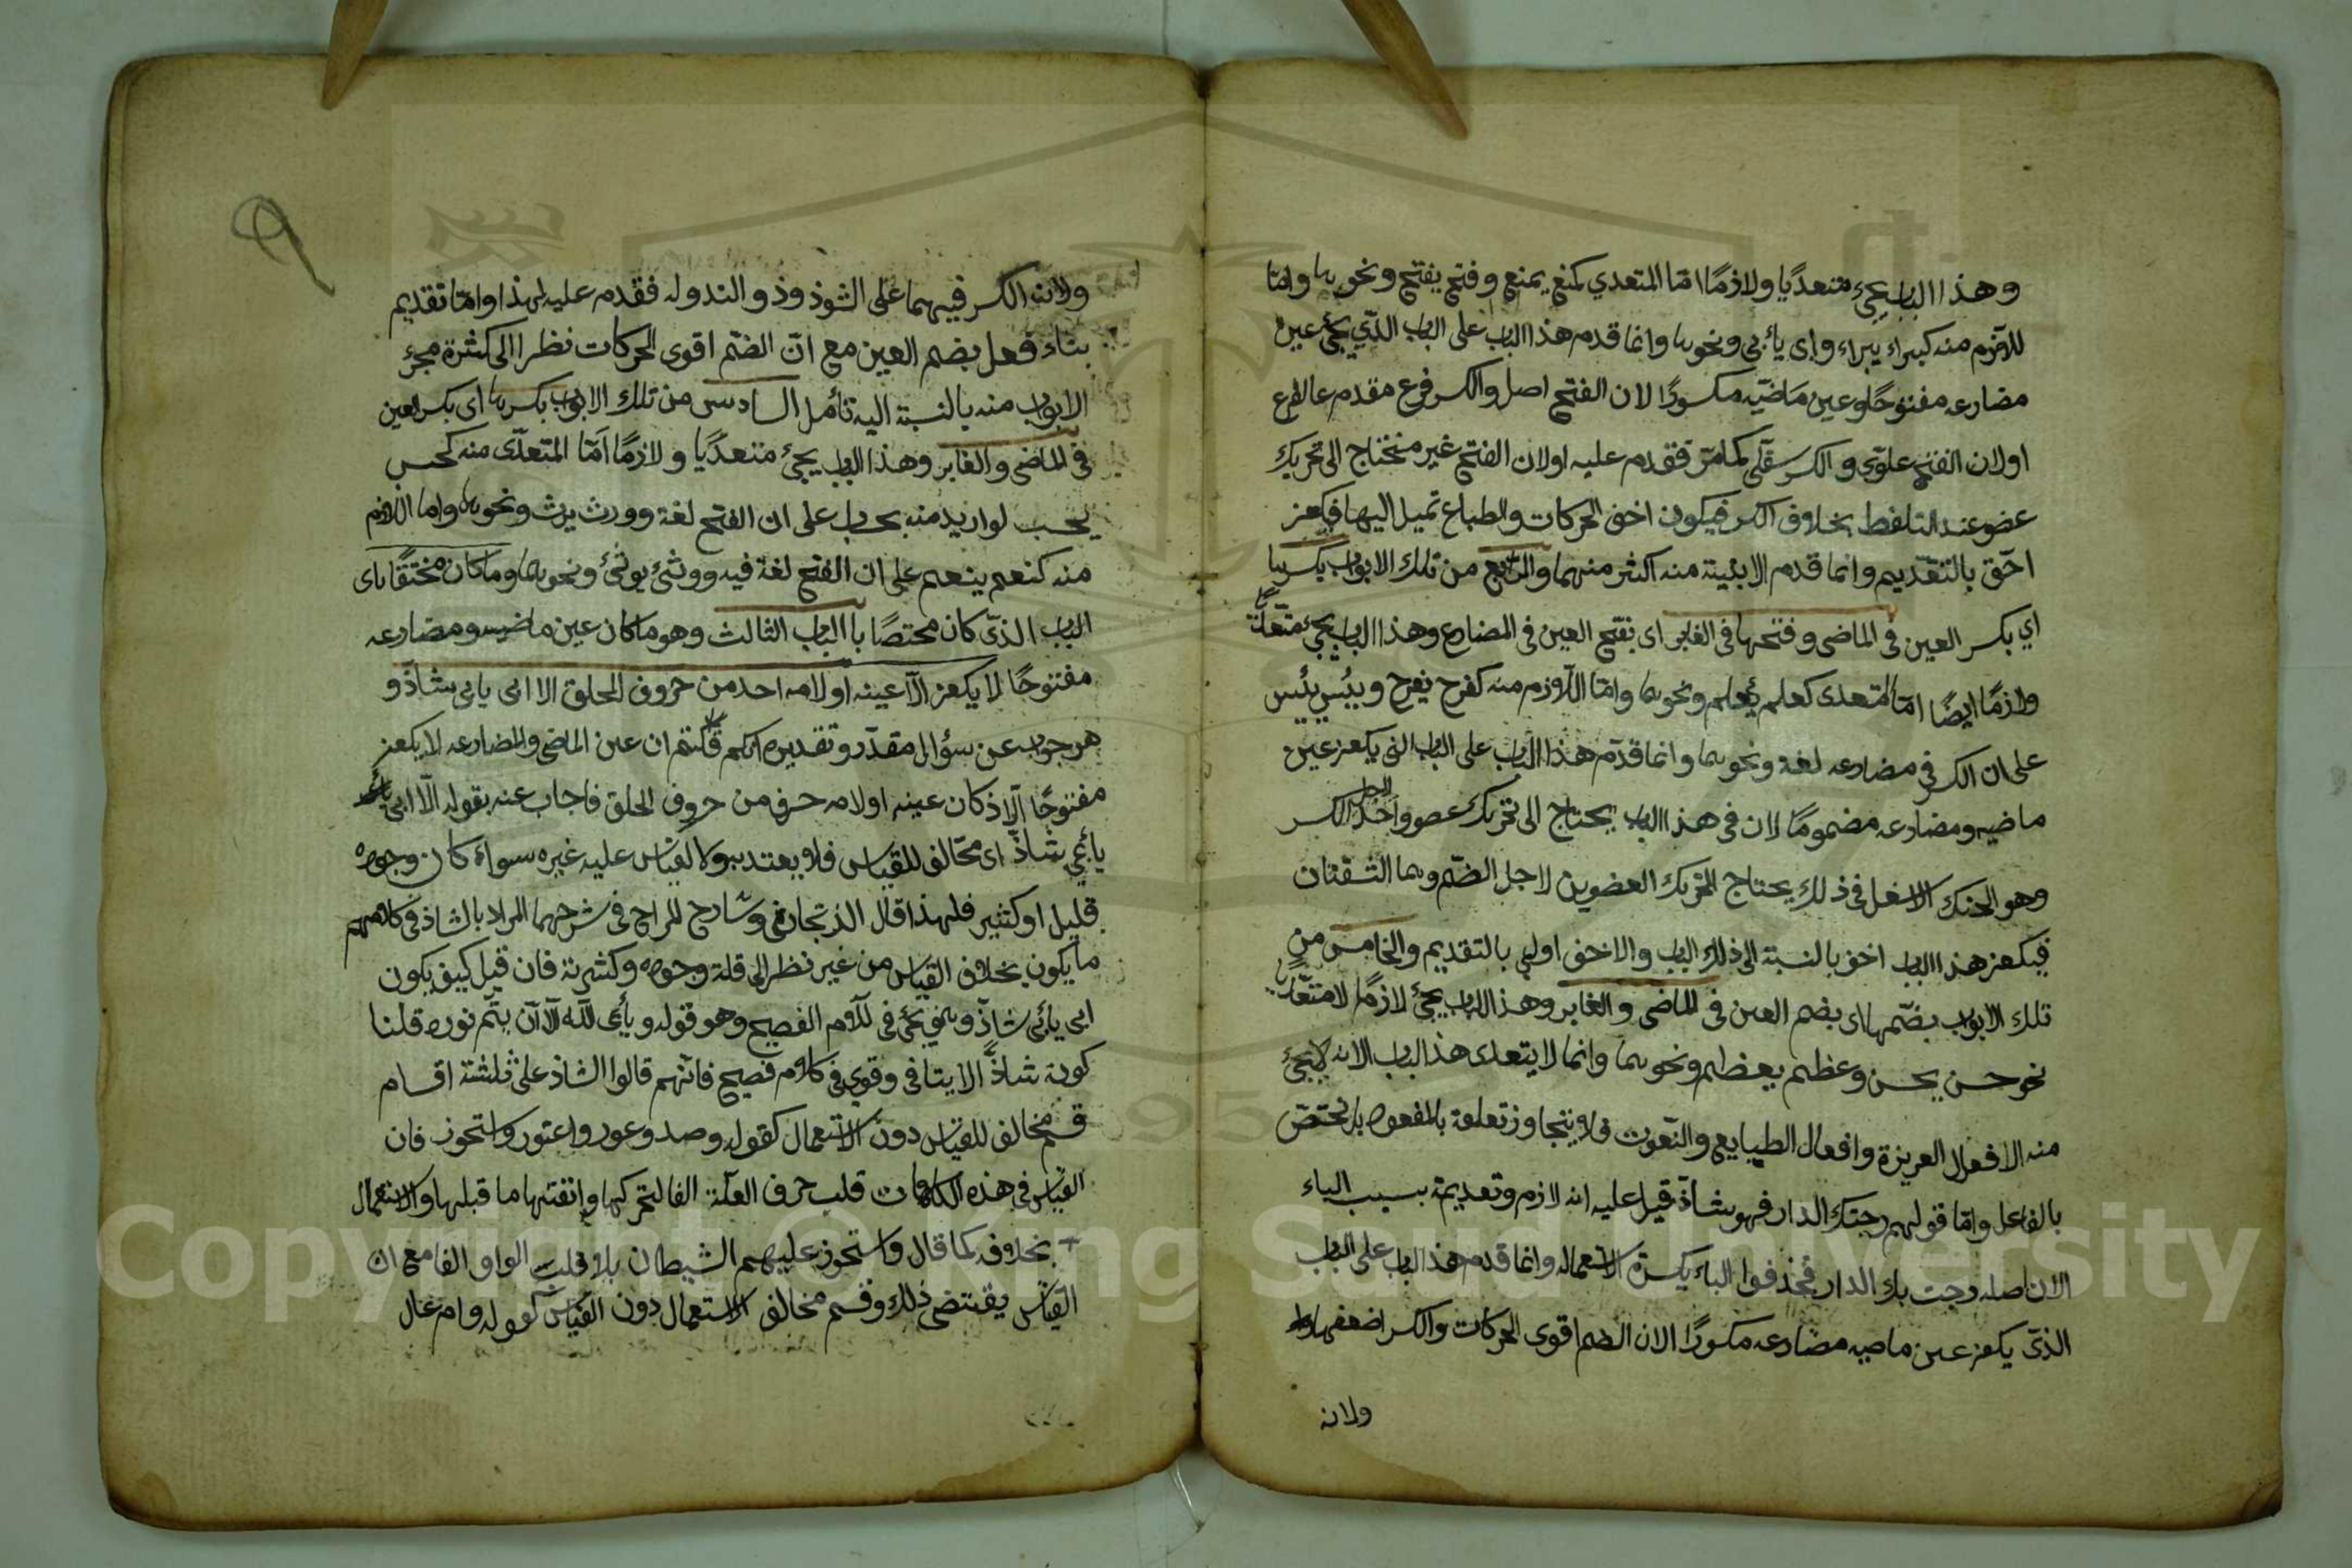 وهذا الباب يجيء متعديًا ولازمًا امّا المتعدي كمنع يمنع وفتح يفتح ونحوها وامّا
للازم منه كبراء يبراء وابى يأبى ونحوها وانما قدم هذا الباب على الباب الذي يجيء عين
مضارعه مفتوحًا وعين ماضيه مكسورًا لان الفتح اصل والكسر فرع مقدم عالفرع
اولان الفتح علوّي والكسر سفلّي كما مرّ فقدم عليه اولان الفتح غير محتاج الى تحريك
عضو عند التلفظ بخلاف الكسر فيكون اخف الحركات والطباع تميل اليها فيكون
احق بالتقديم وانما قدم الابنية منه اكثر منهما والرابع من تلك الابواب بكسرها
اي بكسر العين في الماضى وفتحها فى الغابر اى بفتح العين فى المضارع وهذا الباب يجيء متعدّيًا
ولازمًا ايضًا امّا المتعدى كعلم يعلم ونحوها وامّا اللازم منه كفرح يفرح ويئس يئيس
على ان الكسر في مضارعه لغة ونحوهما وانما قدّم هذا الباب على الباب الذى يكون عين
ماضيه ومضارعه مضمومًا لان فى هذا الباب يحتاج الى تحريك عضو واحد لاجل الكسر
وهو الحنك الاسفل فى ذلك يحتاج الى تحريك العضوين لاجل الضّم وهما الشفتان
فيكون هذا الباب اخف بالنسبة الى ذلك الباب والاخف اولى بالتقديم والخامس من
تلك الابواب بضّمها اى بضم العين فى الماضى والغابر وهذا الباب يجيء لازمًا لا متعدّيا
نحو حسن يحسن وعظم يعظم ونحوهما وانما لا يتعدى هذا الباب الانه لا يجيء
منه الا فعال الغريزة وافعال الطبايع والنّعوت فلا يتجاوز تعلقه بالمفعول بل يختصّ
بالفاعل وامّا قولهم رحبتك الدار فهو شاذّ قيل عليه انه لازم وتعديته بسبب الباء
الان اصله رحبت بك الدار فحذفوا الباء لكثرة الاستعمال وانما قدم هذا الباب على الباب
الذى يكون عين ماضيه مضارعه مكسورًا الان الضم اقوى الحركات والكسر اضعفها
ولانه
٩
ولانه الكسر فيهما على الشوذ وذو الندوله فقدم عليه لهذا وامّا تقديم
بناء فعل بضم العين مع انّ الضّم اقوى الحركات نظرا الى كثرة مجئ
الابواب منه بالنسبة اليه تأمل السادس من تلك الابواب بكسرها اى بكسر العين
فى الماضى والغابر وهذا الباب يجئ متعديًا ولازمًا امّا المتعدّى منه كحسب
يحسب لو اريد منه بحساب على ان الفتح لغة وورث يرث ونحوها واما اللازم
منه كنعم ينعم على ان الفتح لغة فيه ووثئ يوثئ ونحوهما وما كان مختصًا باى
الباب الذى كان مختصًا با الباب الثالث وهو ما كان عين ماضيه ومضارعه
مفتوحًا لا يكون الّا عينه او لامه احد من حروف الحلق الا ابى يابى شاذّ و
هو جواب عن سؤال مقدّر وتقديره انكم قلتم ان عين الماضى والمضارعه لا يكون
مفتوحًا الّا اذ كان عينه او لامه حرف من حروف الحلق فاجاب عنه بقوله الّا ابى
يأبى شاذّ اى مخالف للقياس فلا يعتد به ولا يقاس عليه غيره سواء كان وجوده
قليل او كثير فلهذا قال الزنجارى وشارح المراح فى شرحهما المراد بالشاذ فى كلامهم
ما يكون بخلاف القياس من غير نظر الى قلة وجوده وكثرته فان قيل كيف يكون
ابى يأبى شاذّ وهو يجئ فى كلام الفصيح وهو قوله ويأبى الله الّا ان يتّم نوره قلنا
كونه شاذًّا لا ينافى وقوعه فى كلام فصيح فانهم قالوا الشاذ على ثلثة اقسام
قسم مخالف للقياس دون الاستعمال كقوله وصد وعور واعتور واستحوز فان
القياس فى هذه الكلمات قلب حرف العلة الفا لتحركها وانفتها ما قبلها والاستعمال
بخلافه كما قال واستحوز عليهم الشيطان بلا قلب الواو الفا مع ان
القياس يقتضى ذلك وقسم مخالف الاستعمال دون القياس كقوله وام عال
Copyright © King Saud University